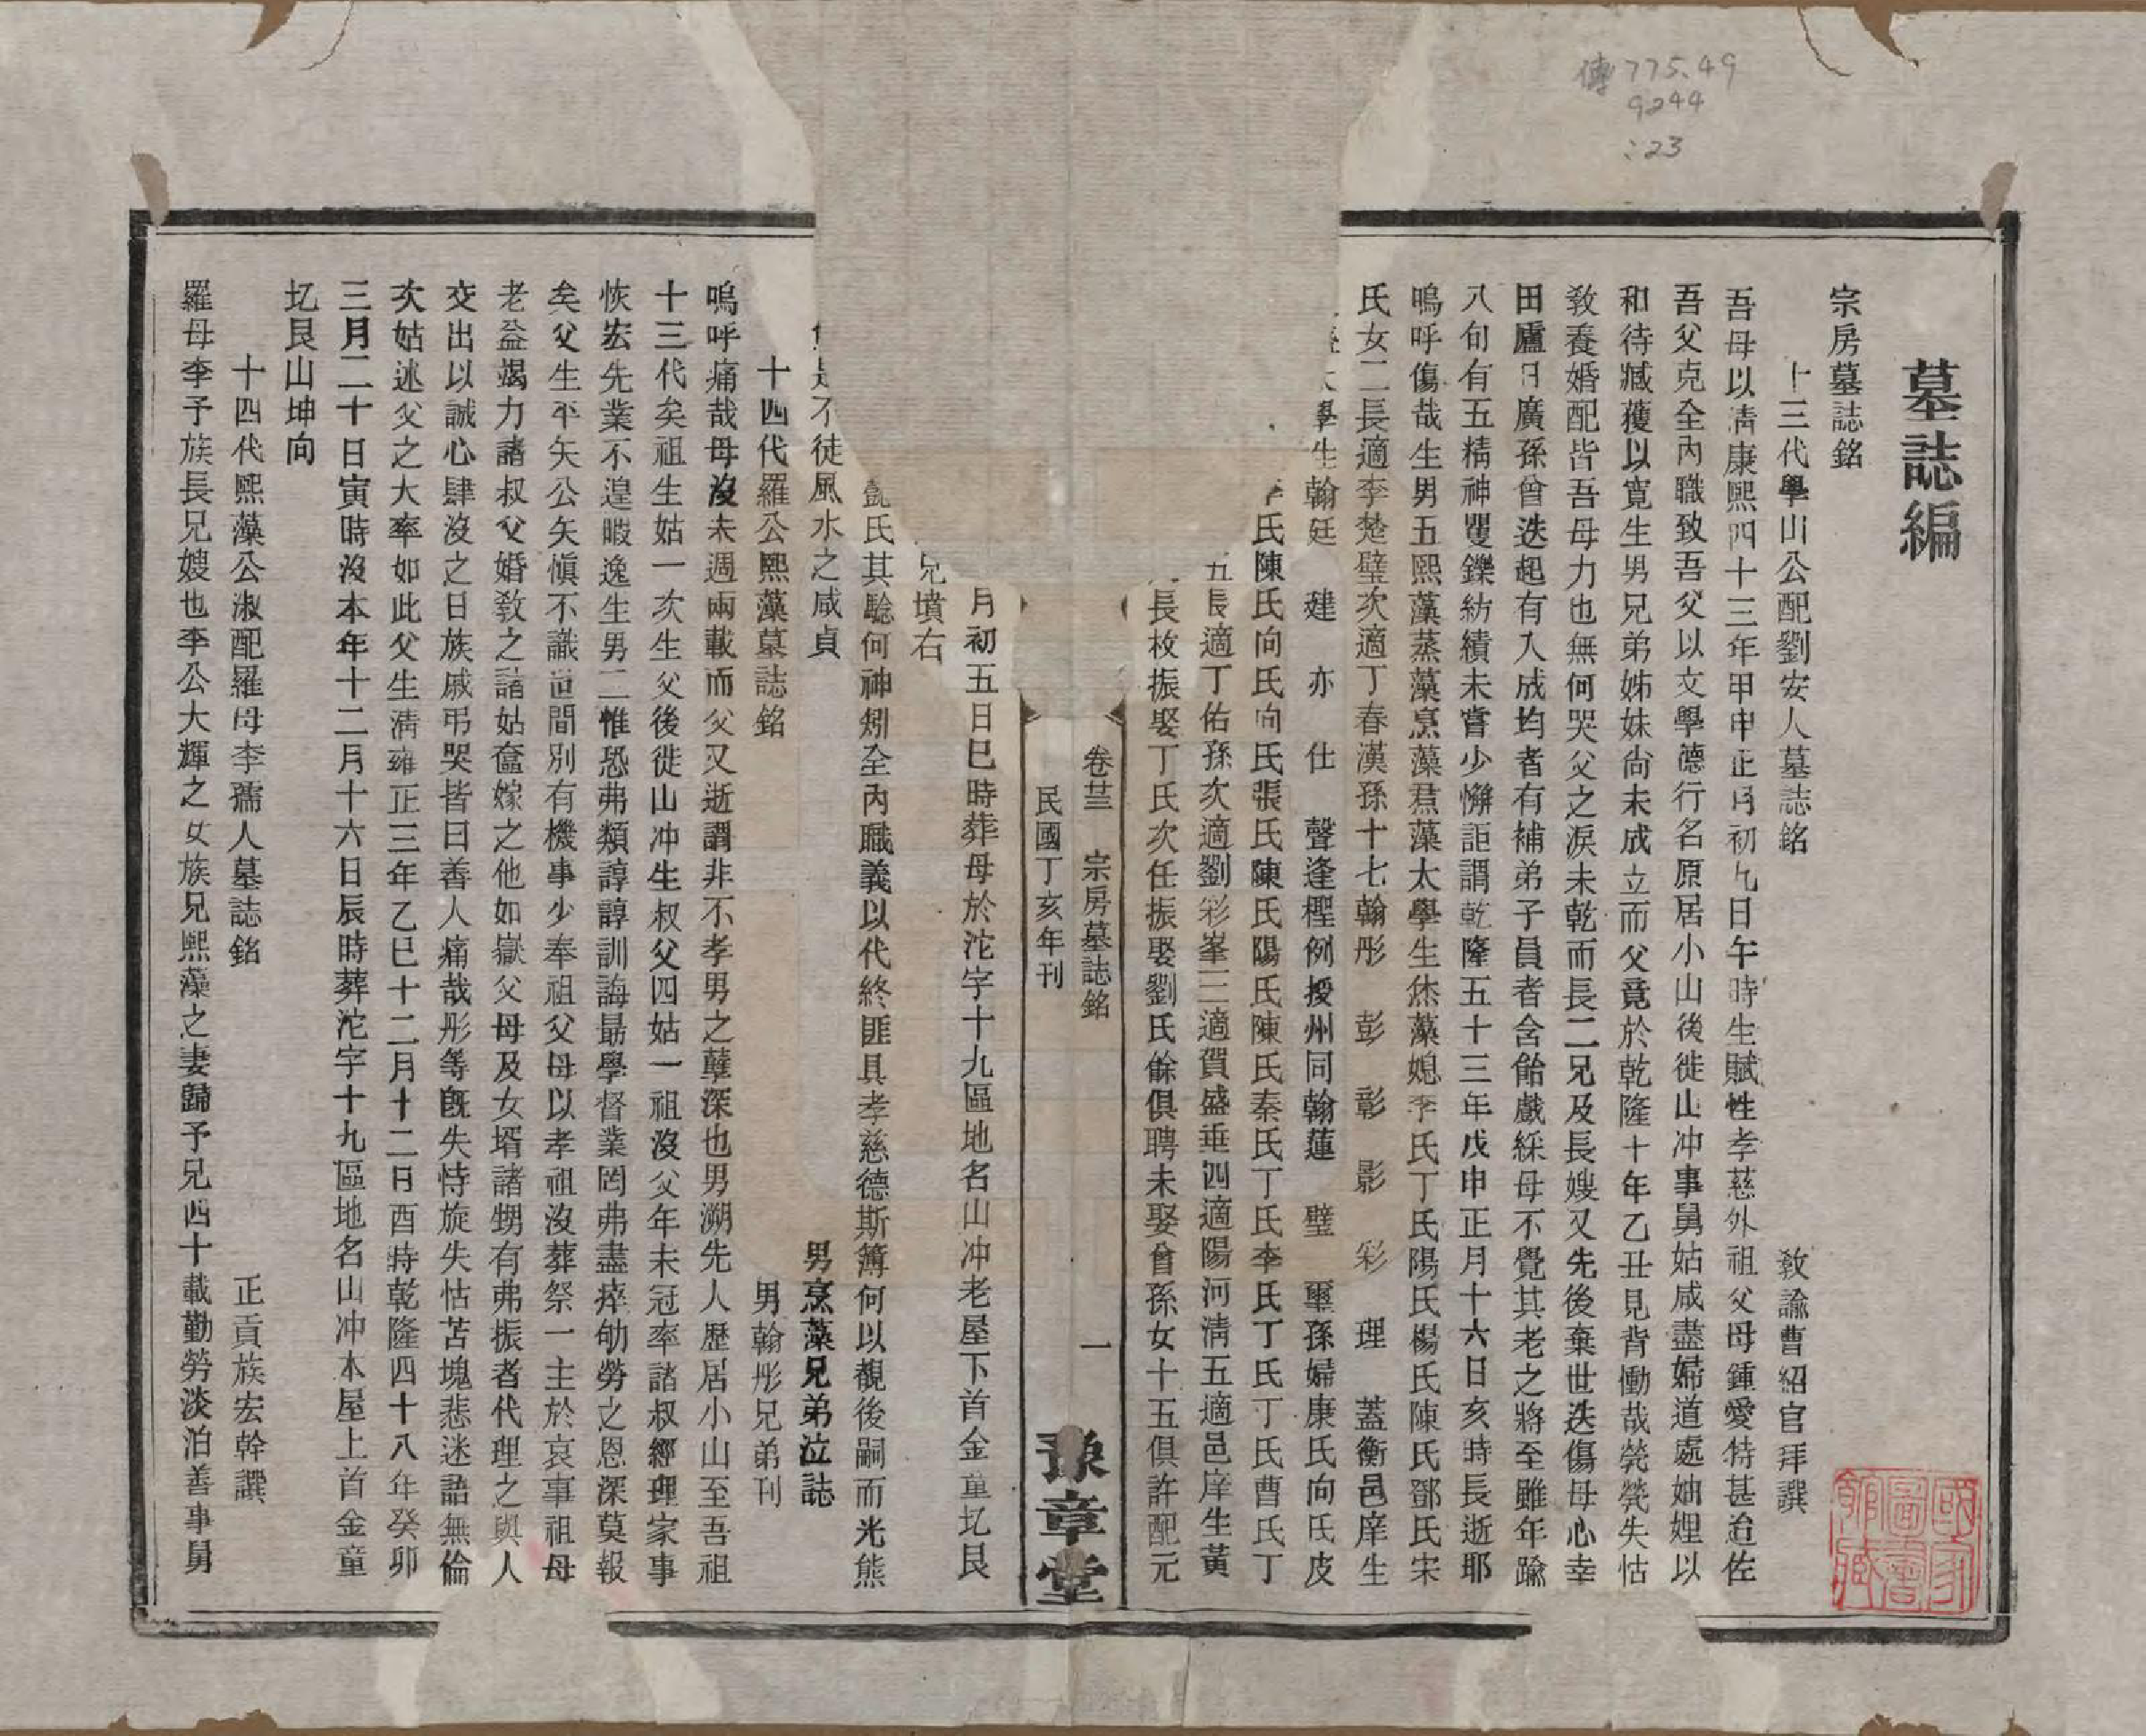 傳775.49
9244
:23
墓誌編
宗房墓誌銘
十三代學山公配劉安人墓誌銘 教諭曹紹官拜譔
吾母以清康熙四十三年甲申正月初九日午時生賦性孝慈外祖父母鍾愛特甚迨佐
吾父克全內職致吾父以文學德行名原居小山後徙山冲事舅姑咸盡婦道處妯娌以
和待臧獲以寬生男兄弟姊妹尙未成立而父竟於乾隆十年乙丑見背慟哉煢煢失怙
敎養婚配皆吾母力也無何哭父之淚未乾而長二兄及長嫂又先後棄世迭傷母心幸
田廬日廣孫曾迭起有入成均者有補弟子員者含飴戲綵母不覺其老之將至雖年踰
八旬有五精神矍鑠紡績未嘗少懈詎謂乾隆五十三年戊申正月十六日亥時長逝耶
嗚呼傷哉生男五熙藻蒸藻烹藻焄藻太學生烋藻媳李氏丁氏陽氏楊氏陳氏鄧氏宋
氏女二長適李楚璧次適丁春漢孫十七翰彤 彭 彰 影 彩 理 蓋衡邑庠生
學生翰廷 建 亦 仕 聲逢檉例授州同翰蓮 璧 壐孫婦康氏向氏皮
氏陳氏向氏向氏張氏陳氏陽氏陳氏秦氏丁氏李氏丁氏丁氏曹氏丁
五長適丁佑孫次適劉彩峯三適賀盛垂四適陽河清五適邑庠生黃
長枚振娶丁氏次任振娶劉氏餘俱聘未娶曾孫女十五俱許配元
卷廿三 宗房墓誌銘 一
民國丁亥年刊 豫章堂
月初五日巳時葬母於沱字十九區地名山冲老屋下首金童圠艮
兄墳右
氏其驗何神矧全內職義以代終匪具孝慈德斯簿何以覩後嗣而光熊
不徒風水之咸貞 男烹藻兄弟泣誌
十四代羅公熙藻墓誌銘 男翰彤兄弟刊
嗚呼痛哉母沒未週兩載而父又逝謂非不孝男之孽深也男溯先人歷居小山至吾祖
十三代矣祖生姑一次生父後徙山冲生叔父四姑一祖沒父年未冠率諸叔經理家事
恢宏先業不遑暇逸生男二惟恐弗類諄諄訓誨最學督業罔弗盡瘁劬勞之恩深莫報
矣父生平矢公矢愼不識世間別有機事少奉祖父母以孝祖沒葬祭一主於哀事祖母
老益竭力諸叔父婚敎之諸姑奩嫁之他如嶽父母及女壻諸甥有弗振者代理之與人
交出以誠心肆沒之日族戚弔哭皆曰善人痛哉彤等旣失恃旋失怙苫塊悲迷語無倫
次姑述父之大率如此父生淸雍正三年乙巳十二月十二日酉時乾隆四十八年癸卯
三月二十日寅時沒本年十二月十六日辰時葬沱字十九區地名山冲本屋上首金童
圠艮山坤向
十四代熙藻公淑配羅母李孺人墓誌銘 正貢族宏幹譔
羅母李予族長兄嫂也李公大輝之女族兄熙藻之妻歸予兄四十載勤勞淡泊善事舅
國家圖書館藏